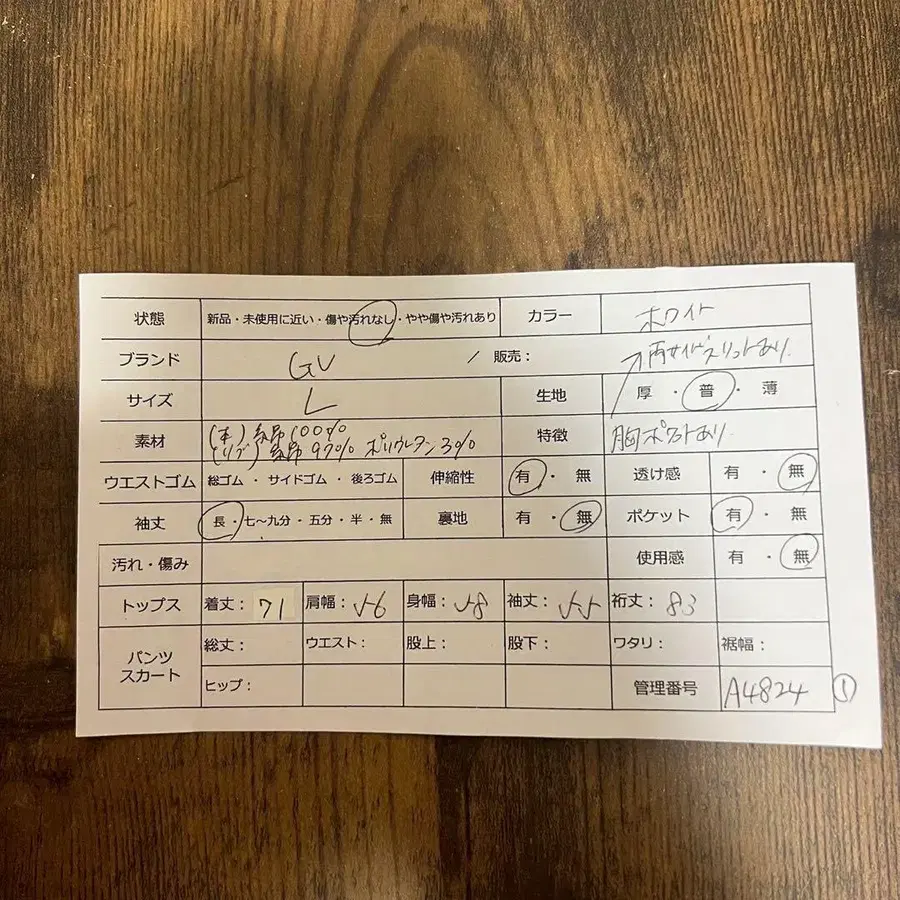 状態 新品・未使用に近い・傷や汚れなし・やや傷や汚れあり カラー ホワイト
ブランド GU / 販売： 両サイドスリットあり
サイズ L 生地 厚・普・薄
素材 (本)綿100%
(リブ)綿97% ポリウレタン3% 特徴 胸ポケットあり
ウエストゴム 総ゴム・サイドゴム・後ろゴム 伸縮性 有・無 透け感 有・無
袖丈 長・七〜九分・五分・半・無 裏地 有・無 ポケット 有・無
汚れ・傷み 使用感 有・無
トップス 着丈：71 肩幅：56 身幅：58 袖丈：55 裄丈：83
パンツ
スカート
総丈： ウエスト： 股上： 股下： ワタリ： 裾幅：
ヒップ： 管理番号 A4824 ①